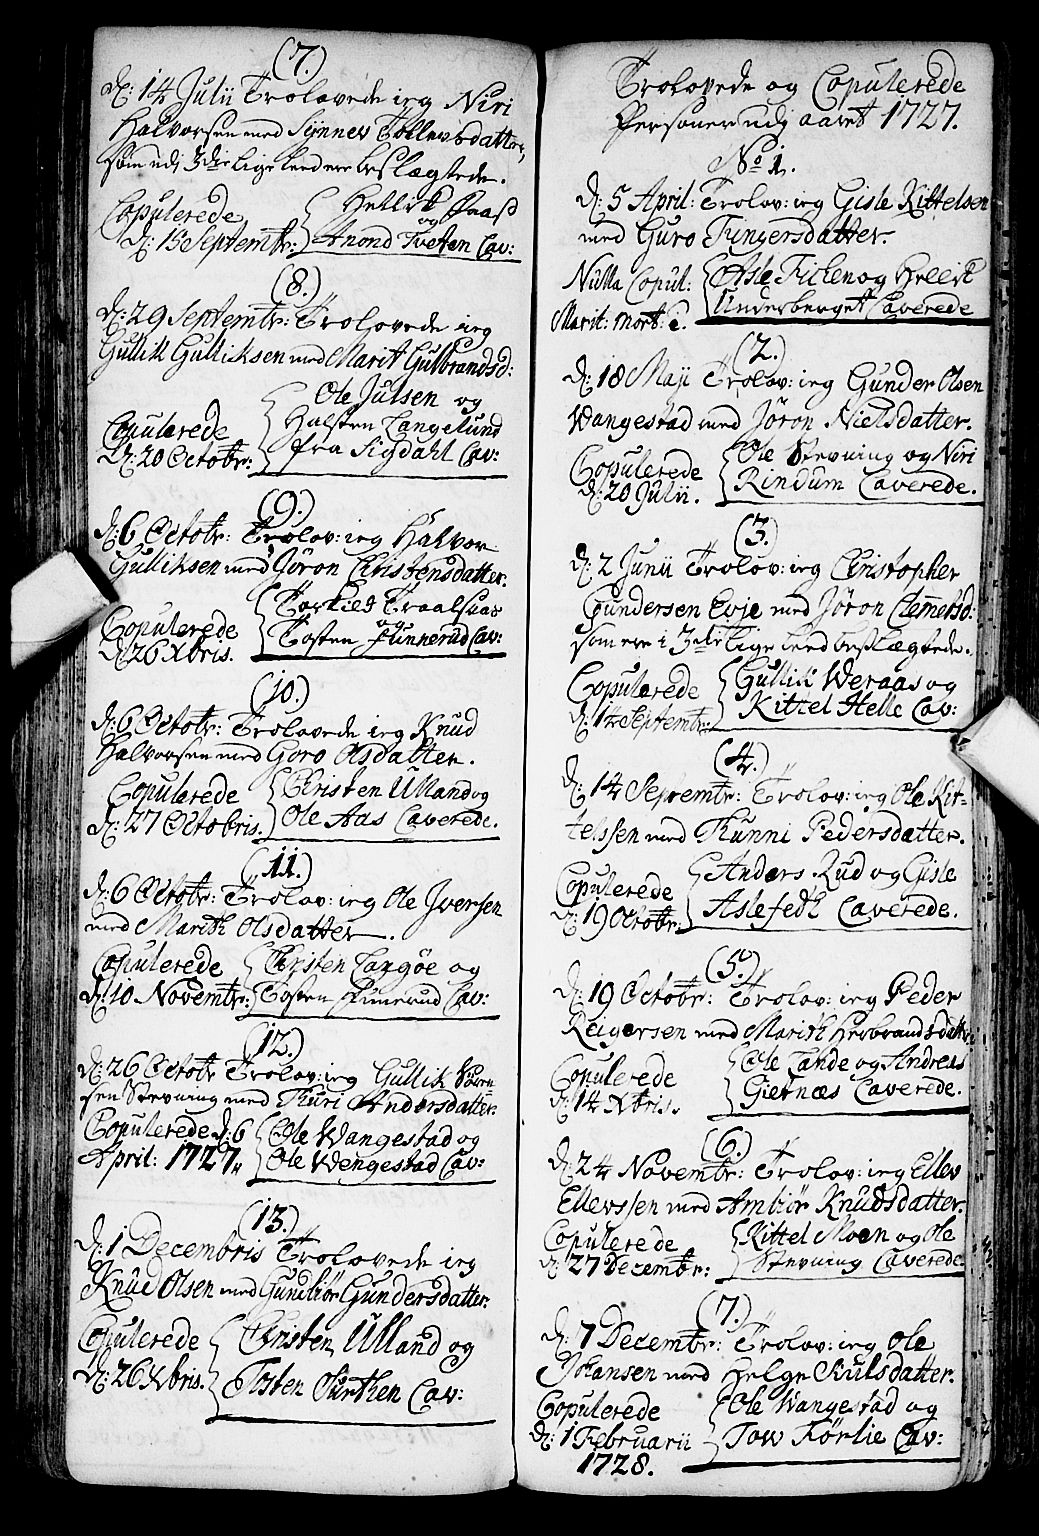 (7.)
d: 14 Julii Trolovede ieg Niri
Halvorsen med Synnev Tollevsdatter,
som udj 3die lige leed ere beslægtede.
Copulerede { Hellik Faas
og
d: 15 Septembr: Anond Tveten Cav:
(8.)
d: 29 Septembr: Trolovede ieg
Gullik Gulliksen med Marit Gulbrandsd:
{ Ole Julsen og
Copulerede Halsten Langelund
d: 20 Octobr: fra Sigdahl Cav:
(9.)
d: 6 Octobr: Trolov: ieg Halvor
Gulliksen med Jøron Christensdatter.
{ Torkild Traalsaas
Copulerede og
d: 26 Xbris. Tosten Funnerud Cav:
(10.)
d: 6 Octobr: Trolovede ieg Knud
Halvorsen med Goro Olsdatter.
Copulerede { Christen Ulland og
d: 27 Octobris. Ole Aas Caverede.
(11.)
d: 6 Octobr: Trolov: ieg Ole Iversen
med Marith Olsdatter.
Copulerede { Christen Langøe og
d: 10 Novembr: Tosten Funnerud Cav:
(12.)
d: 26 Octobr Trolov: ieg Gullik Søren
sen Stevning med Thuri Andersdatter.
Copulerede d: 6 { Ole Wangestad og
April: 1727. Ole Wengestad Cav:
(13.)
d: 1 Decembris Trolovede ieg
Knud Olsen med Gundbiør Gundersdatter.
Copulerede { Christen Ulland og
d: 26 Xbris. Tosten Surthen Cav:
Trolovede og Copulerede
Personer udj aaret 1727.
No 1.
d: 5 April: Trolov: ieg Gisle Kittelsen
med Guro Tingersdatter.
Nulla Copul: { Asle Ficken og Hellik
Marit: mort: e. Underberget Caverede
(2.)
d: 18 Maji Trolov: ieg Gunder Olsen
Wangestad med Jøron Nielsdatter.
Copulerede { Ole Stevning og Niri
d: 20 Julii. Rindum Caverede.
(3.)
d: 2 Junii Trolov: ieg Christopher
Gundersen Evje med Jøron Clemetsd:
som ere i 3die lige leed beslægtede.
Copulerede { Gullik Weraas og
d: 14 Septembr: Kittel Helle Cav:
(4.)
d: 14 Septembr: Trolov: ieg Ole Kit-
telssen med Thunni Pedersdatter.
Copulerede { Anders Rud og Gisle
d: 19 Octobr: Aslefedt Caverede.
(5.)
d: 19 Octobr: Trolov: ieg Peder
Reigersen med Marith Herbrandsdatter
Copulerede { Ole Lande og Andreas
d: 14 Xbris. Giernæs Caverede.
(6.)
d: 24 Novembr: Trolov: ieg Ellev
Ellevssen med Ambiør Knudsdatter.
Copulerede { Kittel Moen og Ole
d: 27 Decembr: Stevning Caverede.
(7.)
d: 7 Decembr: Trolov: ieg Ole
Johansen med Helge Kulsdatter.
Copulerede { Ole Wangestad og
d: 1 Februarii Tow Førlie Cav:
1728.